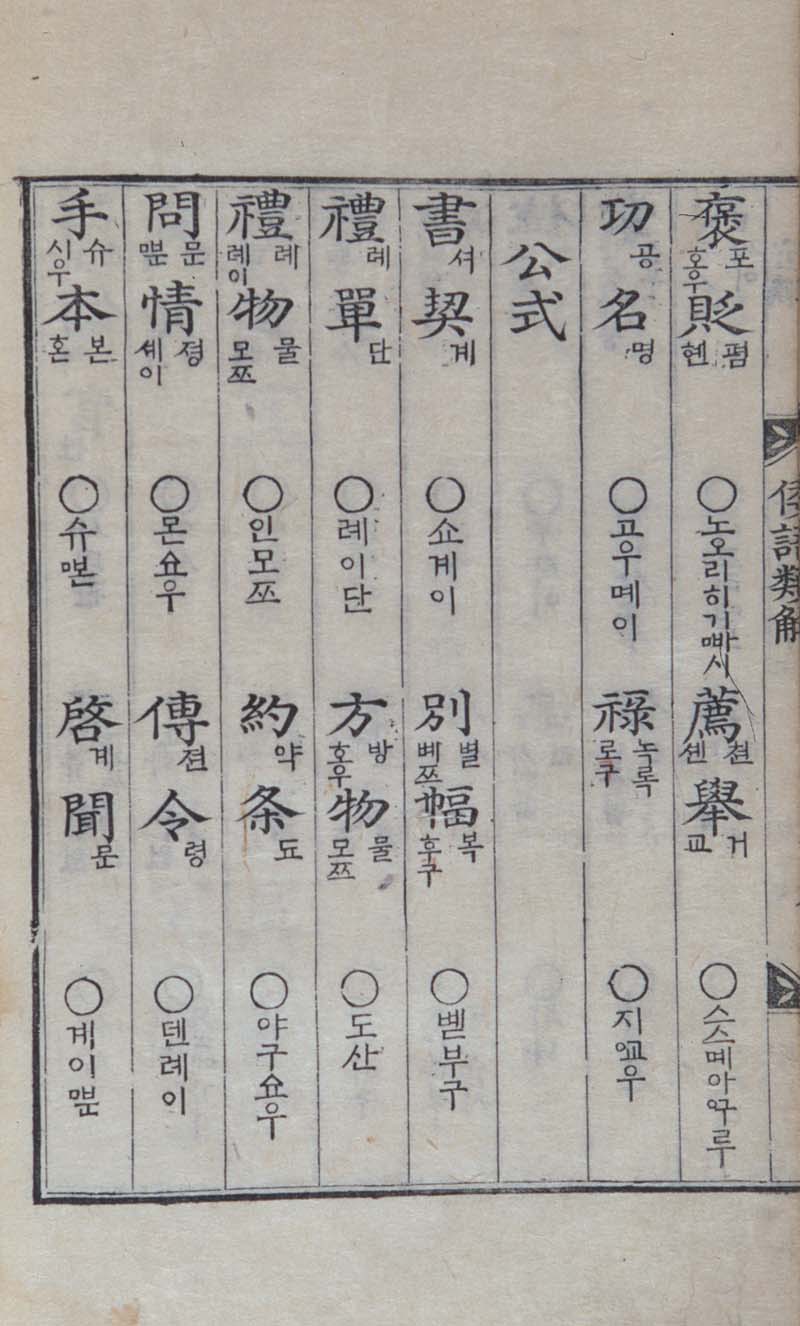 倭語類解
褒포호우貶폄헨○노오리히기ᄜᅡ시薦쳔센擧거교○스스메아ᅁᅮ루
功공名명○고우몌이祿녹록로구○지ᅁᅭ우
公式
書셔契계○쇼계이別별볘쯔幅복후구○볟부구
禮례單단○례이단方방호우物물모쯔○도산
禮례례이物물모쯔○인모쯔約약条됴○야구쇼우
問문ᄜᅮᆫ情졍셰이○몬쇼우傳젼令령○덴례이
手슈시우本본혼○슈ᄜᅩᆫ啓계聞문○계이ᄜᅮᆫ